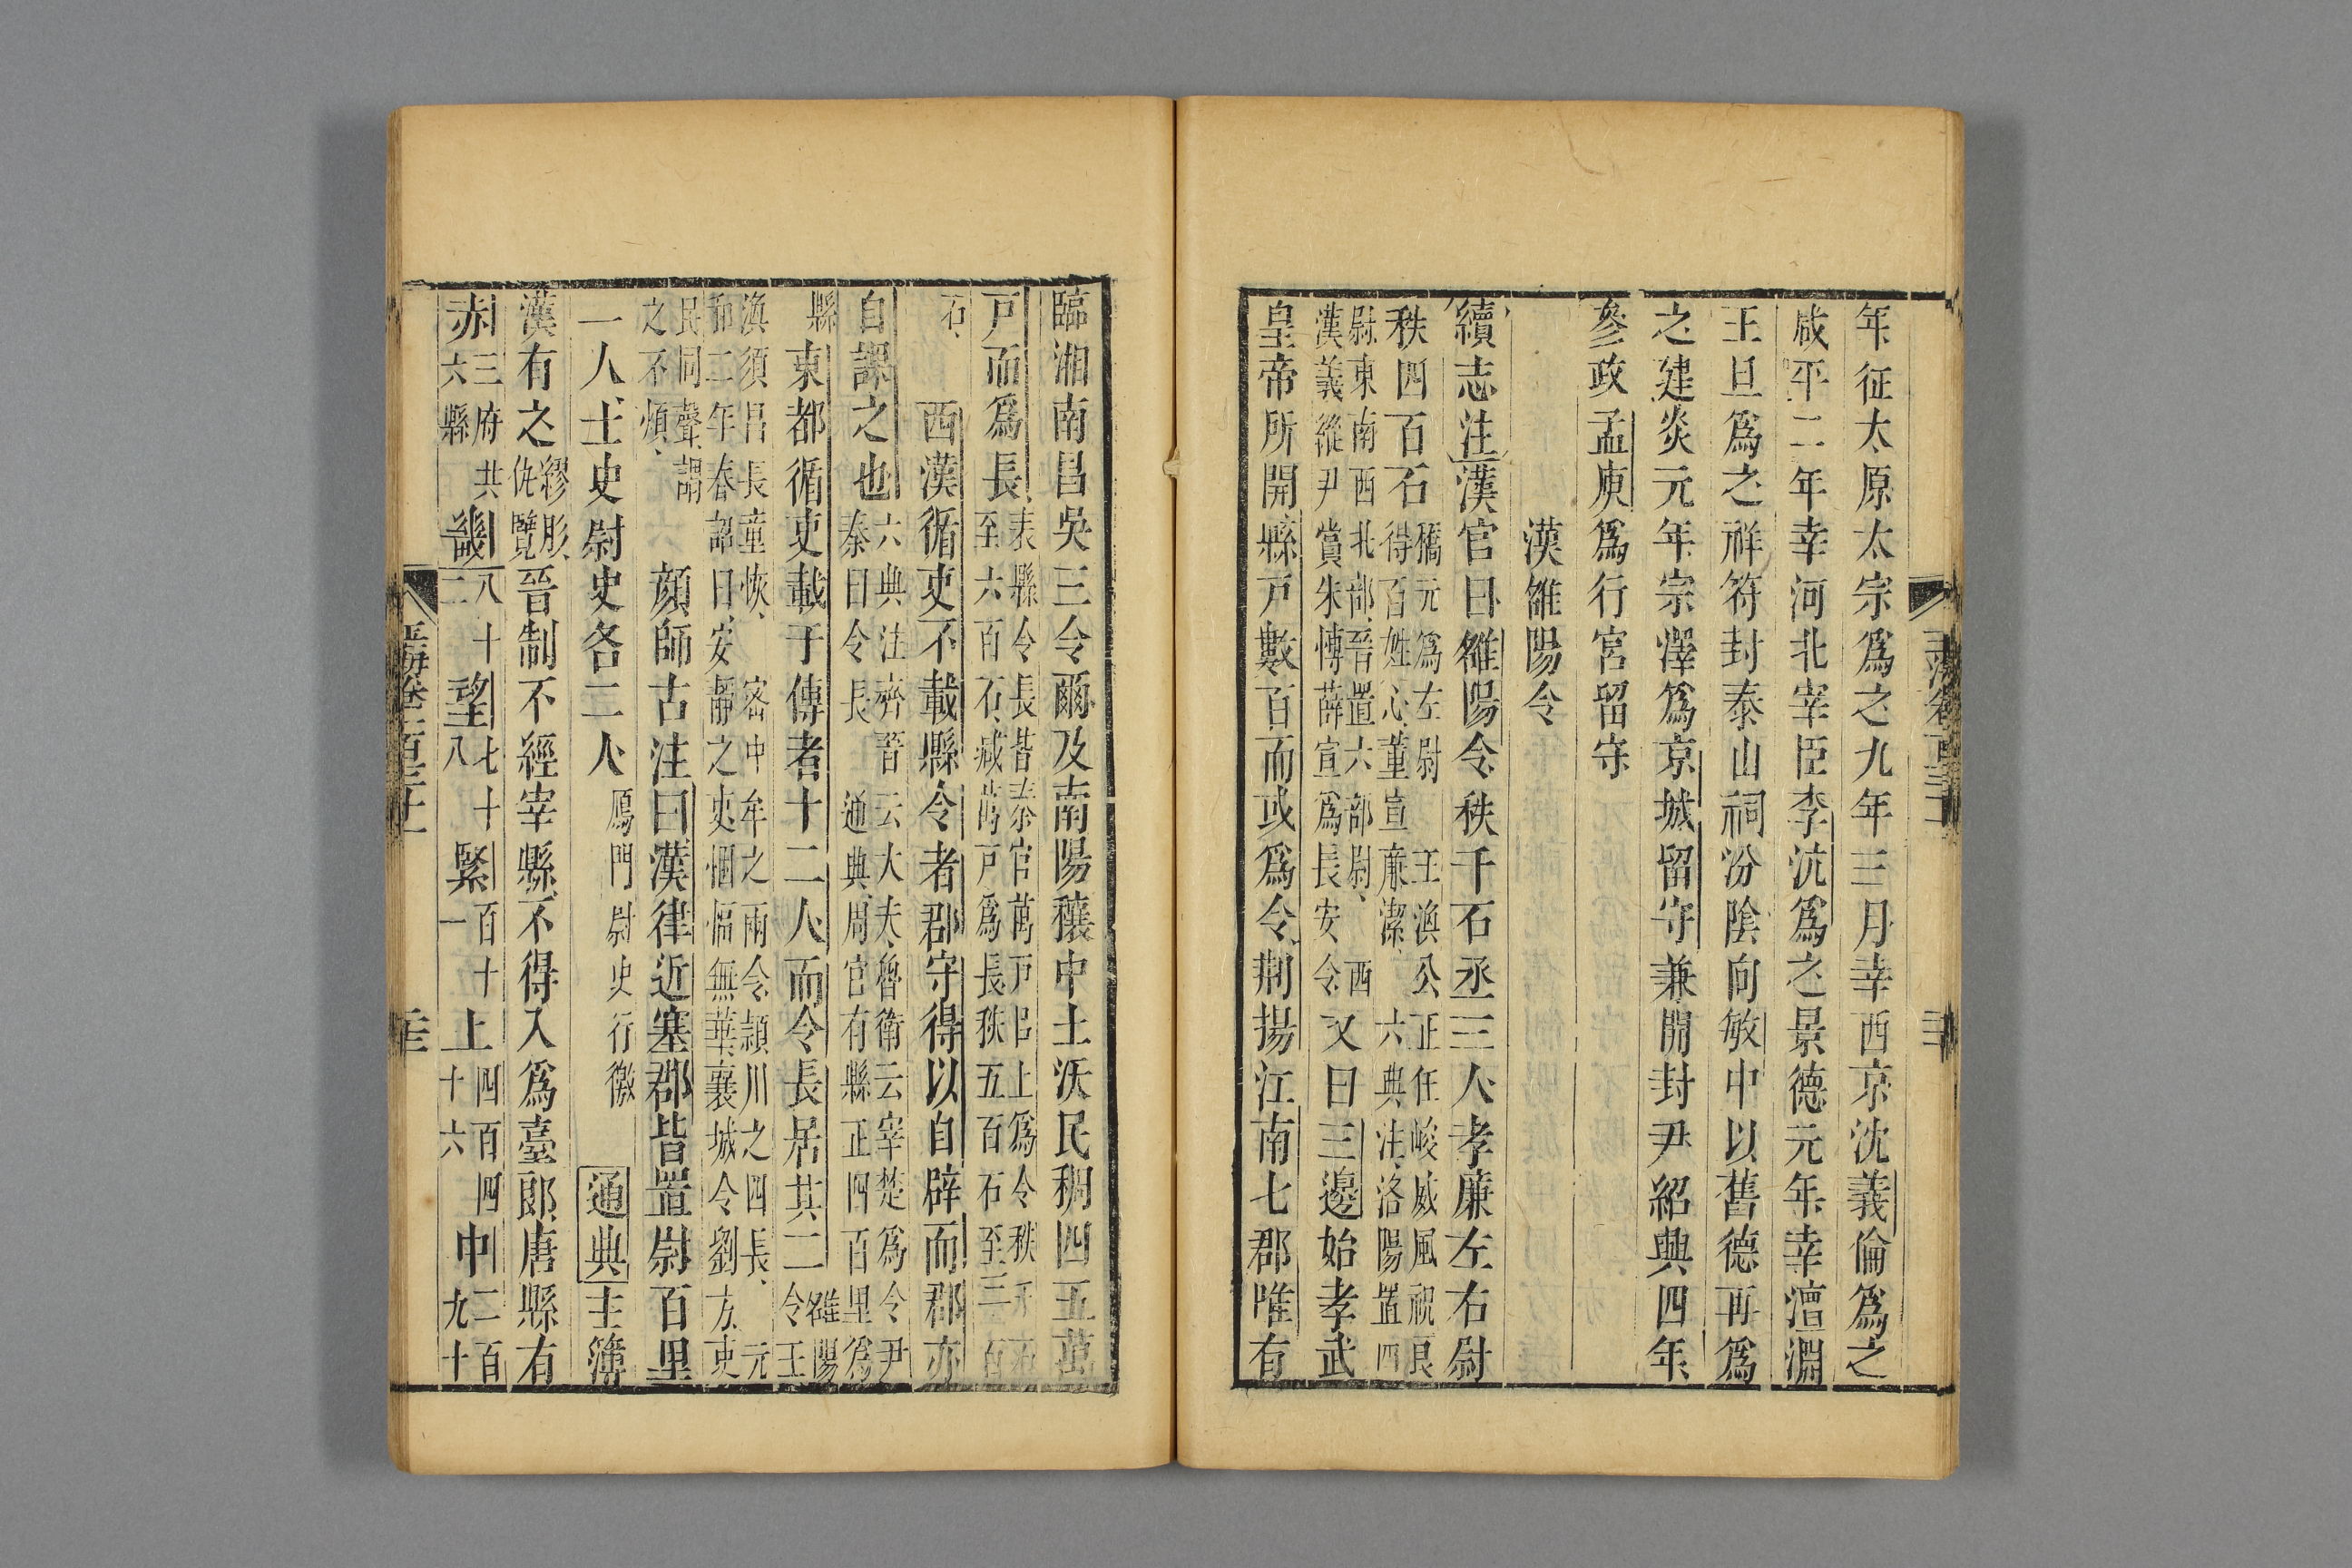 年征太原太宗爲之九年三月幸西京沈義倫爲之
咸平二年幸河北宰臣李沆爲之景德元年幸澶淵
王旦爲之祥符封泰山祠汾陰向敏中以舊德再爲
之建炎元年宗澤爲京城留守兼開封尹紹興四年
參政孟庾爲行宮留守
漢雒陽令
續志注漢官曰雒陽令秩千石丞三人孝廉左右尉
秩四百石
橋元爲左尉 王渙公正任峻威風祝良
得百姓心董宣廉潔 六典注洛陽置四
尉東南西北部晉置六部尉 西
漢義縱尹賞朱博薛宣爲長安令
又曰三邊始孝武
皇帝所開縣戸數百而或爲令荆揚江南七郡唯有
臨湘南昌吳三令爾及南陽穰中土沃民稠四五萬
戸而爲長
表縣令長皆秦官萬戸已上爲令秩千石
至六百石减萬戸爲長秩五百石至三百
石
西漢循吏不載縣令者郡守得以自辟而郡亦
自課之也
六典注齊晉云大夫魯衛云宰楚爲令尹
秦曰令長 通典周官有縣正四百里爲
縣
東都循吏載于傳者十二人而令長居其二
雒陽
令王
渙須昌長童恢 密中牟之兩令潁川之四長 元
和二年春詔曰安靜之吏悃愊無華襄城令劉方吏
民同聲謂
之不煩
顔師古注曰漢律近塞郡皆置尉百里
一人士史尉史各二人
鴈門尉史行徼
通典主簿
漢有之
繆肜
仇覽
晉制不經宰縣不得入爲臺郎唐縣有
赤
三府共
六縣
畿
八十
二
望
七十
八
緊
百十
一
上
四百四
十六
中
二百
九十